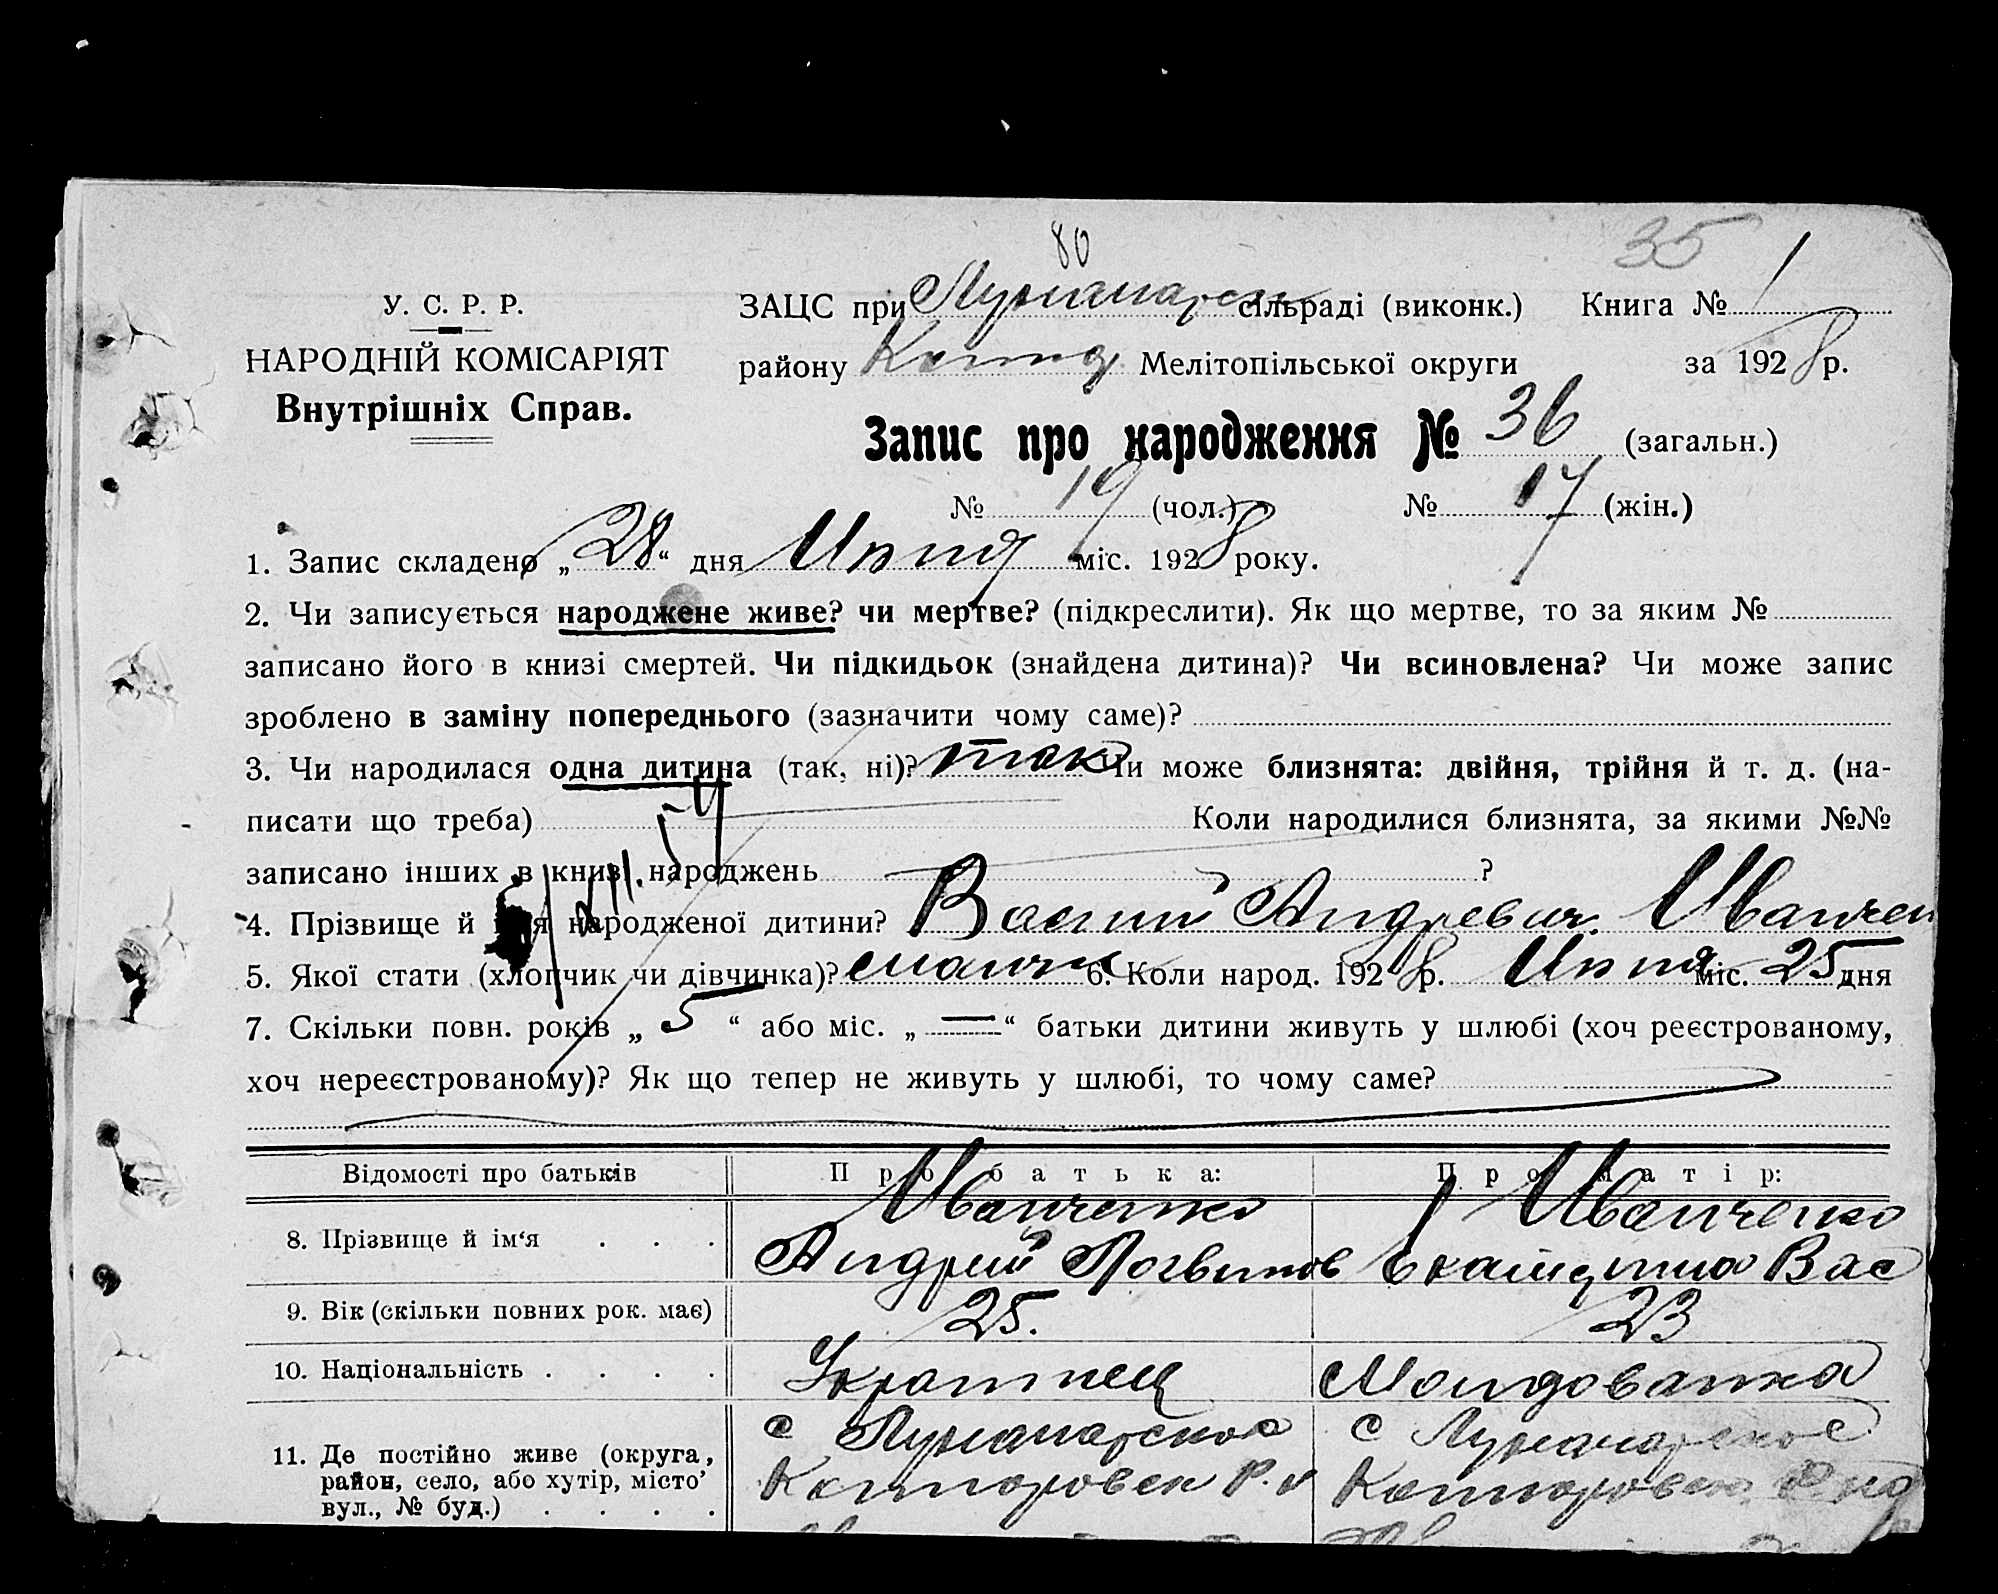 80
35
У. С. Р. Р.
ЗАЦС при Луначарск сільраді (виконк.) Книга № 1
НАРОДНІЙ КОМІСАРІЯТ
району Мелітопільської округи за 1928 р.
Внутрішніх Справ.
Запис про народження № 36 (загальн.)
№ 19 (чол.) № 17 (жін.)
1. Запис складено „28“ дня Июня міс. 1928 року.
2. Чи записується народжене живе? чи мертве? (підкреслити). Як що мертве, то за яким №
записано його в книзі смертей. Чи підкидьок (знайдена дитина)? Чи всиновлена? Чи може запис
зроблено в заміну попереднього (зазначити чому саме)?
3. Чи народилася одна дитина (так, ні)? так Чи може близнята: двійня, трійня й т. д. (на-
писати що треба) Коли народилися близнята, за якими №№
записано інших в книзі народжень ?
4. Прізвище й ім'я народженої дитини? Васший Андревич. Иванчен
5. Якої стати (хлопчик чи дівчинка)? 6. Коли народ. 1928 р. Июня міс. 25 дня
7. Скільки повн. років „ 5 “ або міс. „ — “ батьки дитини живуть у шлюбі (хоч реєстрованому,
хоч нереєстрованому)? Як що тепер не живуть у шлюбі, то чому саме?
Відомості про батьків Про батька: Про матір:
Иванченко Иванченко
8. Прізвище й ім‘я . . . Андрий Логвинов Екатерина Вас
9. Вік (скільки повних рок. має) 25. 23
10. Національність . . . . Украинец Молдованка
с Луначарское с Луначарское
11. Де постійно живе (округа,
район, село, або хутір, місто’ Р.
вул., № буд.) . . . .